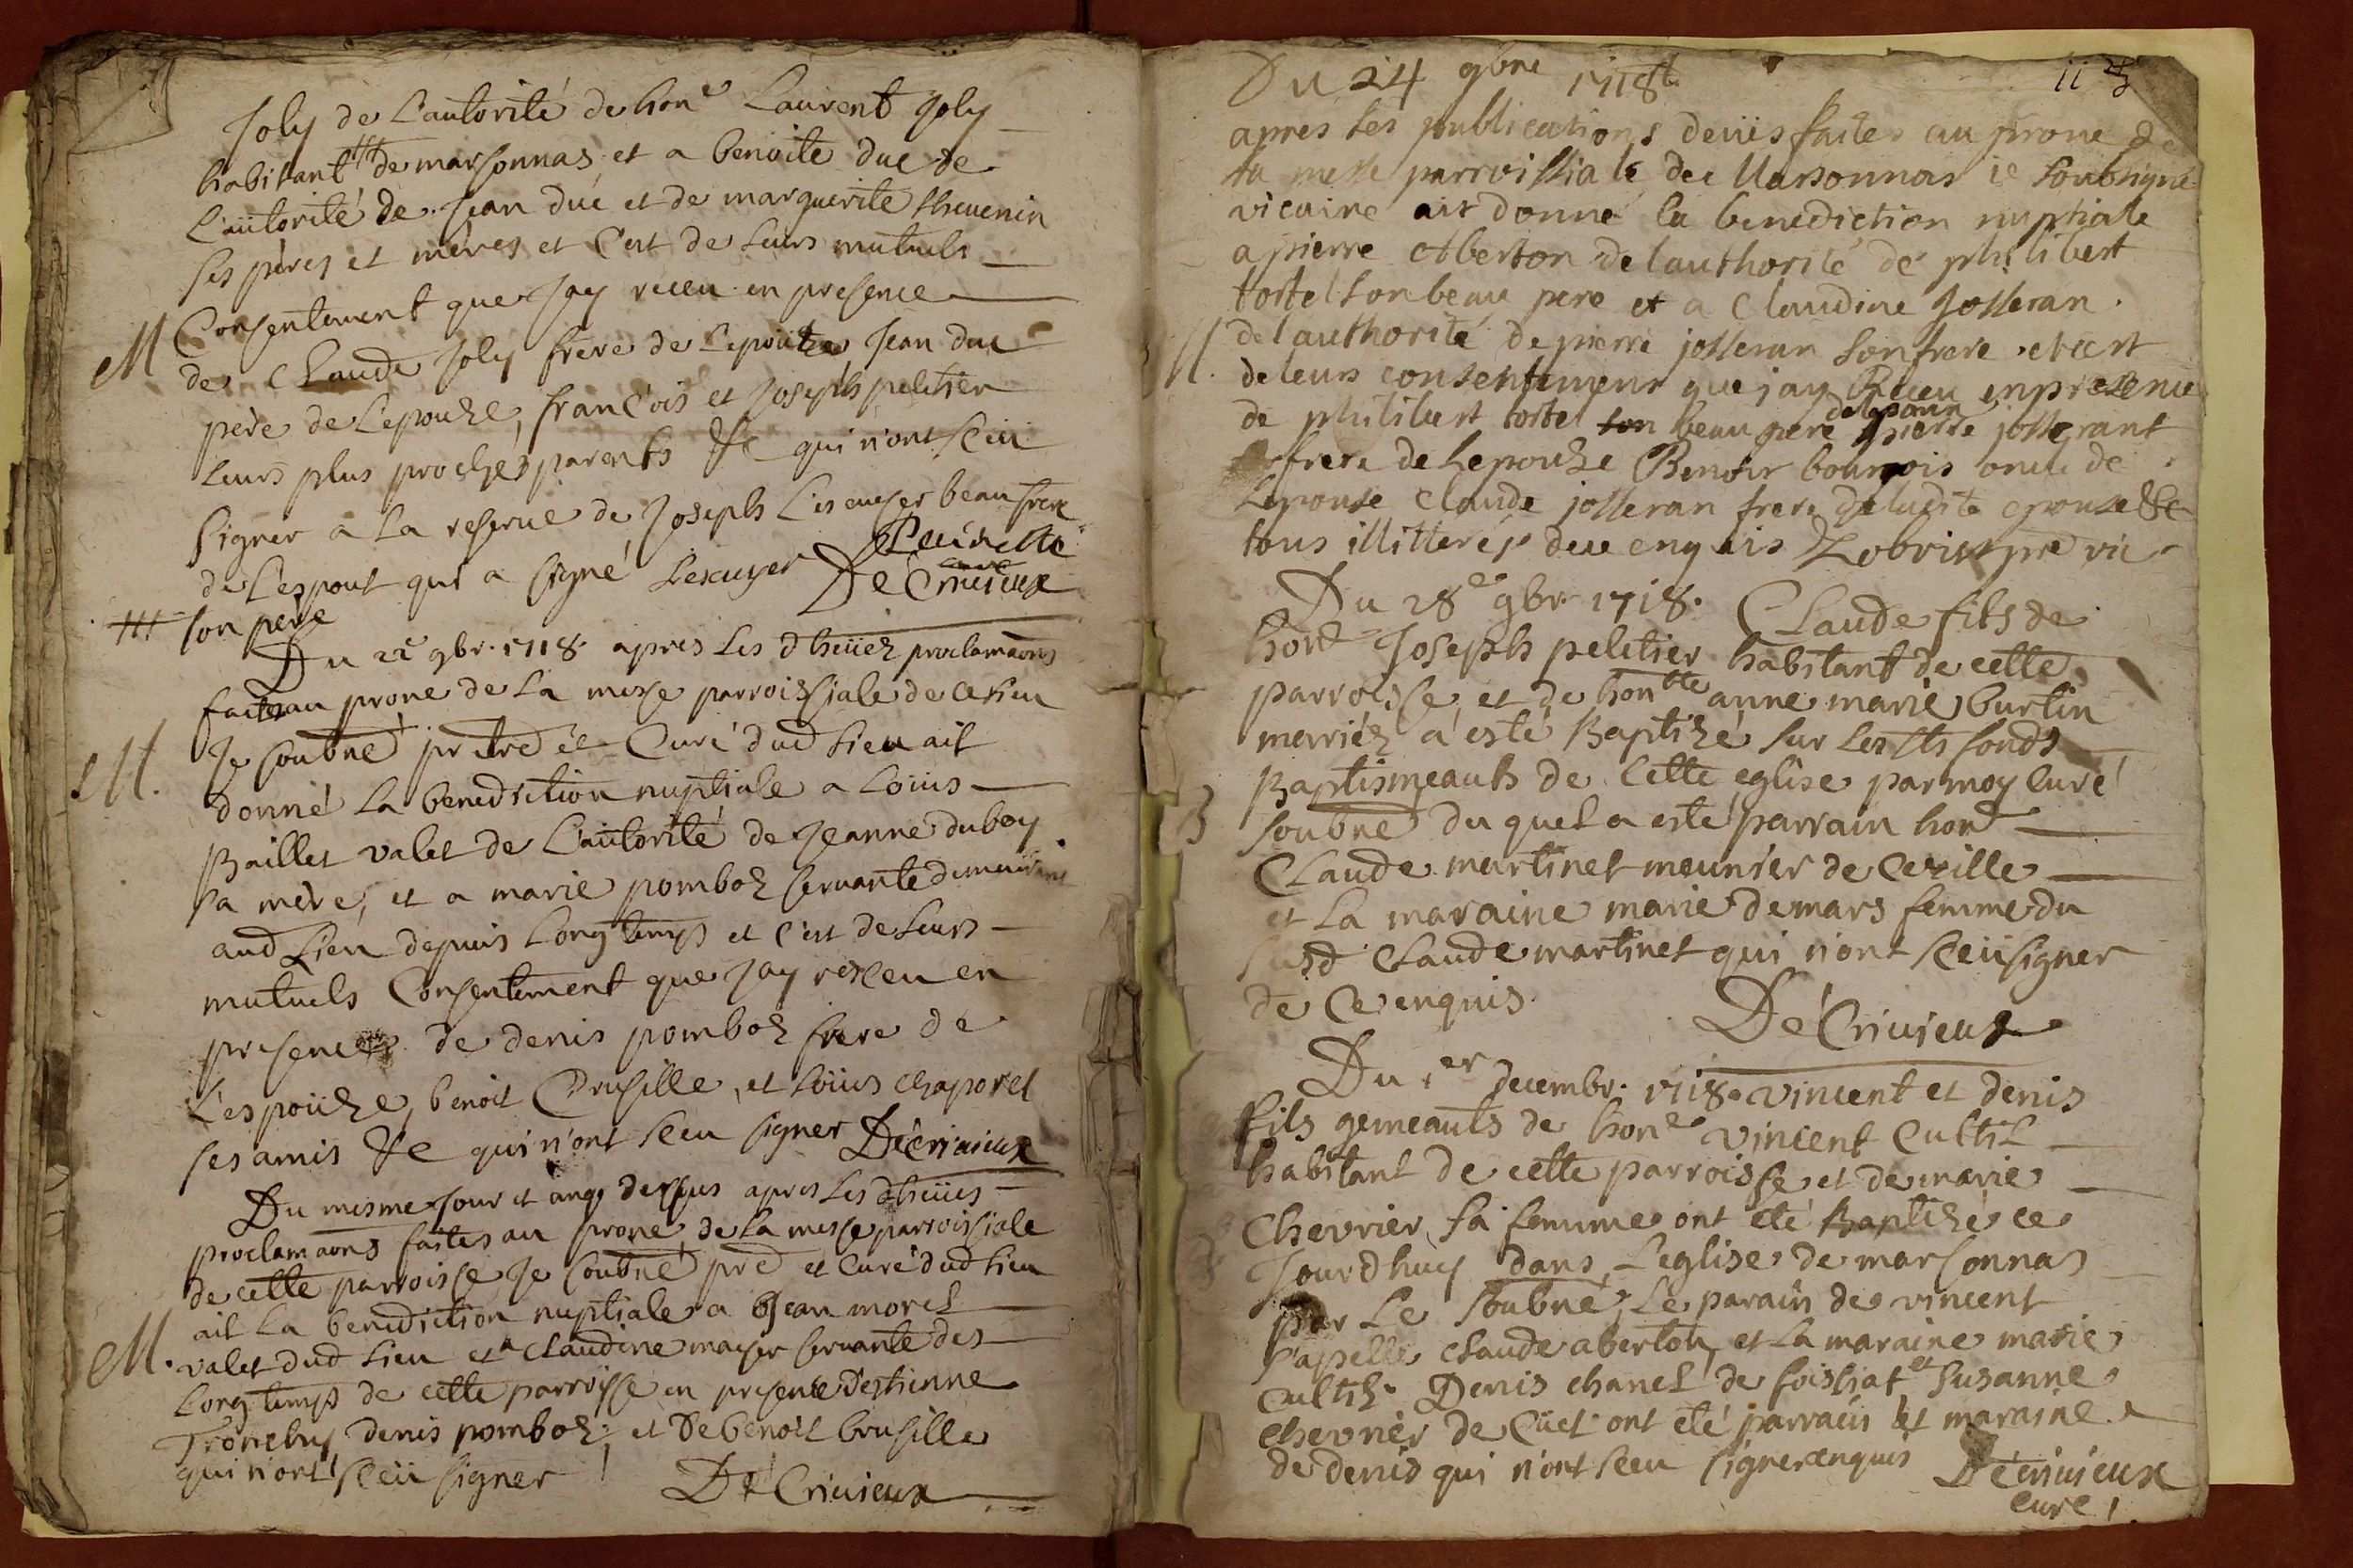 Joly de L'autorité de hon^e Laurent Joly
habitant ╫ de marsonnas et a benoite duc de
L'aütorité de Jean duc et de marguerite theuenin
ses pères et mères et C'est de Leurs mutuels
M Consentement que Jay receu en presence
de Claude Joly frere de Lepouze Jean duc
père de Lepouze, francois et Joseph peletier
Leurs plus proches parents &c qui n'ont sceu
signer a La reserue de Joseph Lescuyer beau frere
de Lespout qui a signé Lescuyer DeCriuieux
╫ son père
Du 22^e 9br. 1718. apres Les d heües proclamaons
faites au prone de La messe parroissiale de ce Lieu
M. Je soubné prttre et Curé dud Lieu ait
donné La benediction nuptiale a Loüis
Baillet valet de L'aütorité de Jeanne duboy
sa mère, et a marie pomboz seruante
aud Lieu depuis Long temps et c'est de Leurs
mutuels Consentement que Jay resceu en
presence de denis pomboz frere de
L'espoüze, benoit Brusille, et Loüis chaporel
ses amis &c qui n'ont sceu signer Décriuieux
Du mesme Jour et ang dessus apres Les d heües
proclamaons faites au prone de La messe parroissiale
de cette parroisse Je soubné pre et Curé dud Lieu
ait La benediction nuptiale a Jean morel
M. valet dud Lieu et a claudine mayer seruante des
Long temps de cette parroisse en presence destienne
denis pomboz; et De benoit brusille
qui n'ont sceü signer DéCriuieux
ii
Du 24 9bre 1718
apres les publications deües faites au prone de
la messe parroissiale dee Marsonnas ie soubsigné
vicaire ait donné la benediction nuptiale
a pierre Aberton de lauthorité de philibert
tortel son beau pere et a Claudine Josseran
M. de lauthorité de pierre josseran son frere et cest
de leurs consentemens que jay Receu en presence
de philibert tortel son beau pere pierre josserant
frere de Lepouze Benoir bourgois oncle de
Lepouse Claude josseran frere de ladite epouse &c
tous illitterés dece enquis Lobrist pre vic
Du 28^e 9br. 1718. Claude fils de
hon^e Joseph peletier habitant de cette
parroisse et de hon^ble anne marie burtin
merriéz a esté Baptizé sur Les sts fonds
Baptismeauts de Cette eglise par moy Curé
B soubné du quel a esté parrain hon^e
Claude martinet meunier de Ceville
et La maraine marie demars femme du
susd Claude martinet qui n'ont sceü signer
de Ce enquis. DéCriuieux
Du 1^er decembr. 1718. vincent et denis
fils gemeauts de hon^e vincent Cultil
habitant de cette parroisse et de marie
Chevrier sa femme ont été Baptizé ce
Jourdhuy dans L'eglise de marsonnas
par Le soubné, Le parain de vincent
s'apelle claude aberton, et La maraine marie
Cultil. Denis chanel de foissiat et Susanne
chevrier de Cüet ont été parrain et maraine
de denis qui n'ont sceu signer enquis Décriuieux
curé